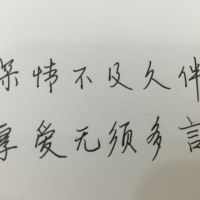 深情不及久伴
厚爱无须多言